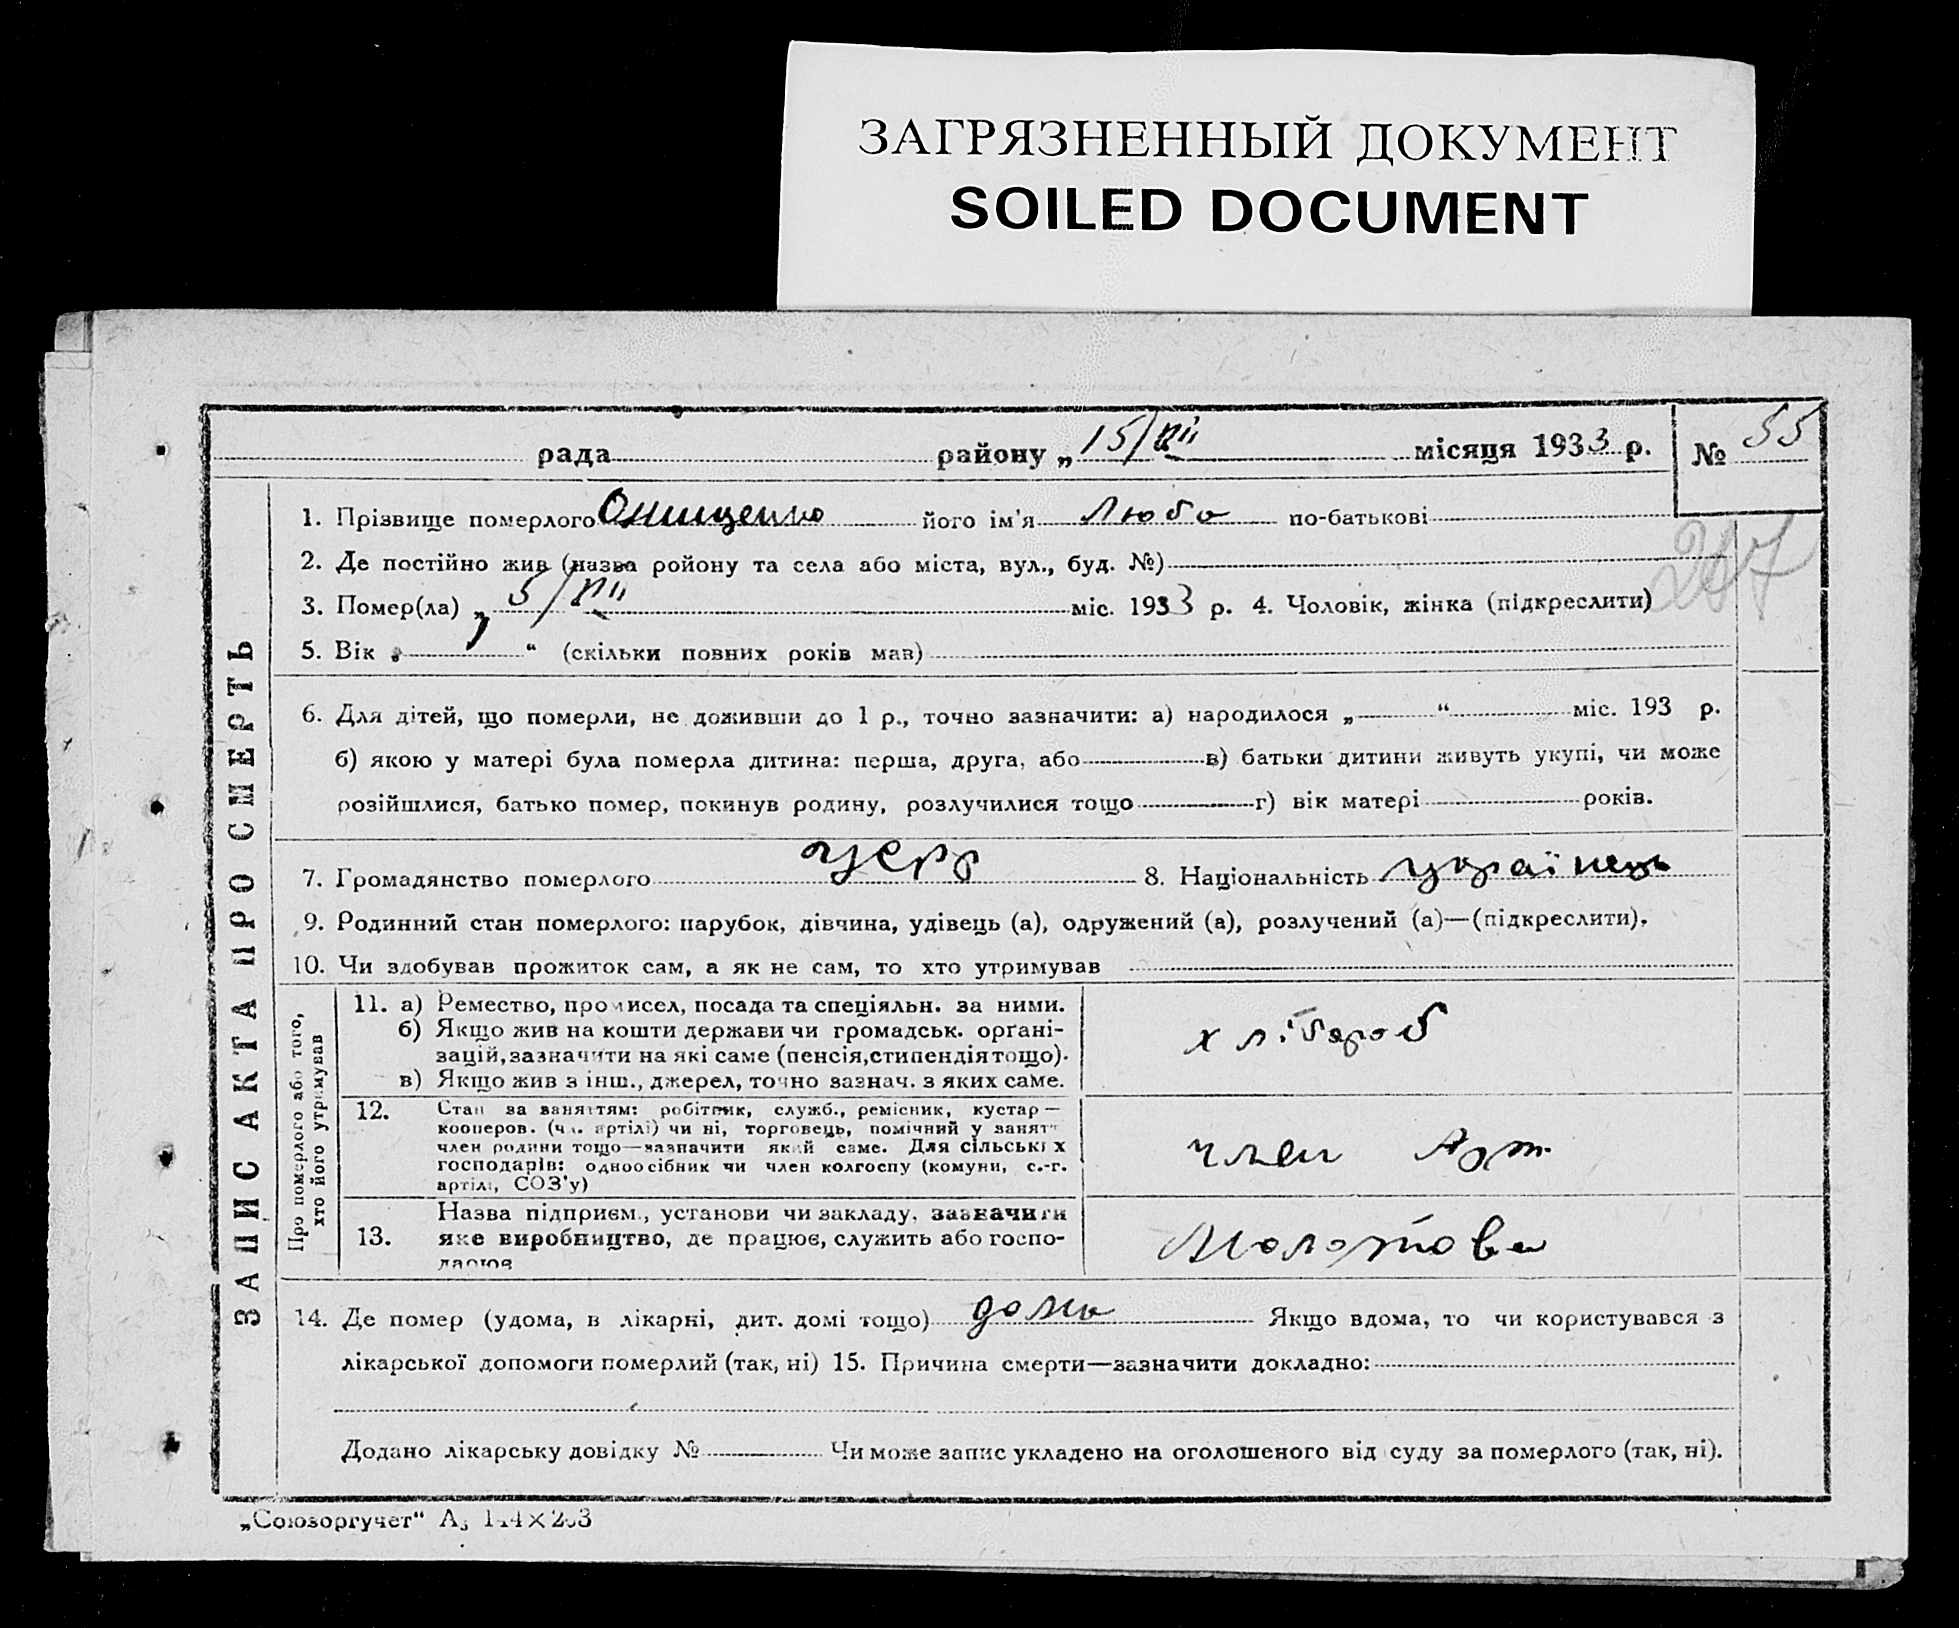 ЗАГРЯЗНЕННЫЙ ДОКУМЕНТ
SOILED DOCUMENT
рада району „ 15/VII місяця 1933 р. № 55
1. Прізвище померлого Онищенко його ім'я Люба по-батькові
207
2. Де постійно жив (назва ройону та села або міста, вул., буд. №)
3. Помер(ла) „ 5/VII міс. 1933 р. 4. Чоловік, жінка (підкреслити)
5. Вік „ 1 “ (скільки повних років мав)
6. Для дітей, що померли, не доживши до 1 р., точно зазначити: а) народилося „ “ міс. 193 р.
б) якою у матері була померла дитина: перша, друга, або в) батьки дитини живуть укупі, чи може
розійшлися, батько помер, покинув родину, розлучилися тощо г) вік матері років.
7. Громадянство померлого УСРР 8. Національність українець
9. Родинний стан померлого: парубок, дівчина, удівець (а), одружений (а), розлучений (а)—(підкреслити).
10. Чи здобував прожиток сам, а як не сам, то хто утримував
ЗАПИС АКТА ПРО СМЕРТЬ
Про померлого або того,
хто його утримував
11. а) Ремество, промисел, посада та спеціяльн. за ними.
б) Якщо жив на кошти держави чи громадськ. орґані-
зацій, зазначити на які саме (пенсія, стипендія тощо).
в) Якщо жив з інш., джерел, точно зазнач. з яких саме.
хлібороб
12. Стан за заняттям: робітник, служб., ремісник, кустар—
кооперов. (чл. артілі) чи ні, торговець, помічний у занят
член родини тощо—зазначити який саме. Для сільських
господарів: одноосібник чи член колгоспу (комуни, с.-г.
артілі, СОЗ'у)
член Арт.
13. Назва підприєм., установи чи закладу, зазначити
яке виробництво, де працює, служить або госпо-
дарює
Молотова
14. Де помер (удома, в лікарні, дит. домі тощо) дома Якщо вдома, то чи користувався з
лікарської допомоги померлий (так, ні) 15. Причина смерти—зазначити докладно:
Додано лікарську довідку № Чи може запис укладено на оголошеного від суду за померлого (так, ні).
„Союзоргучет“